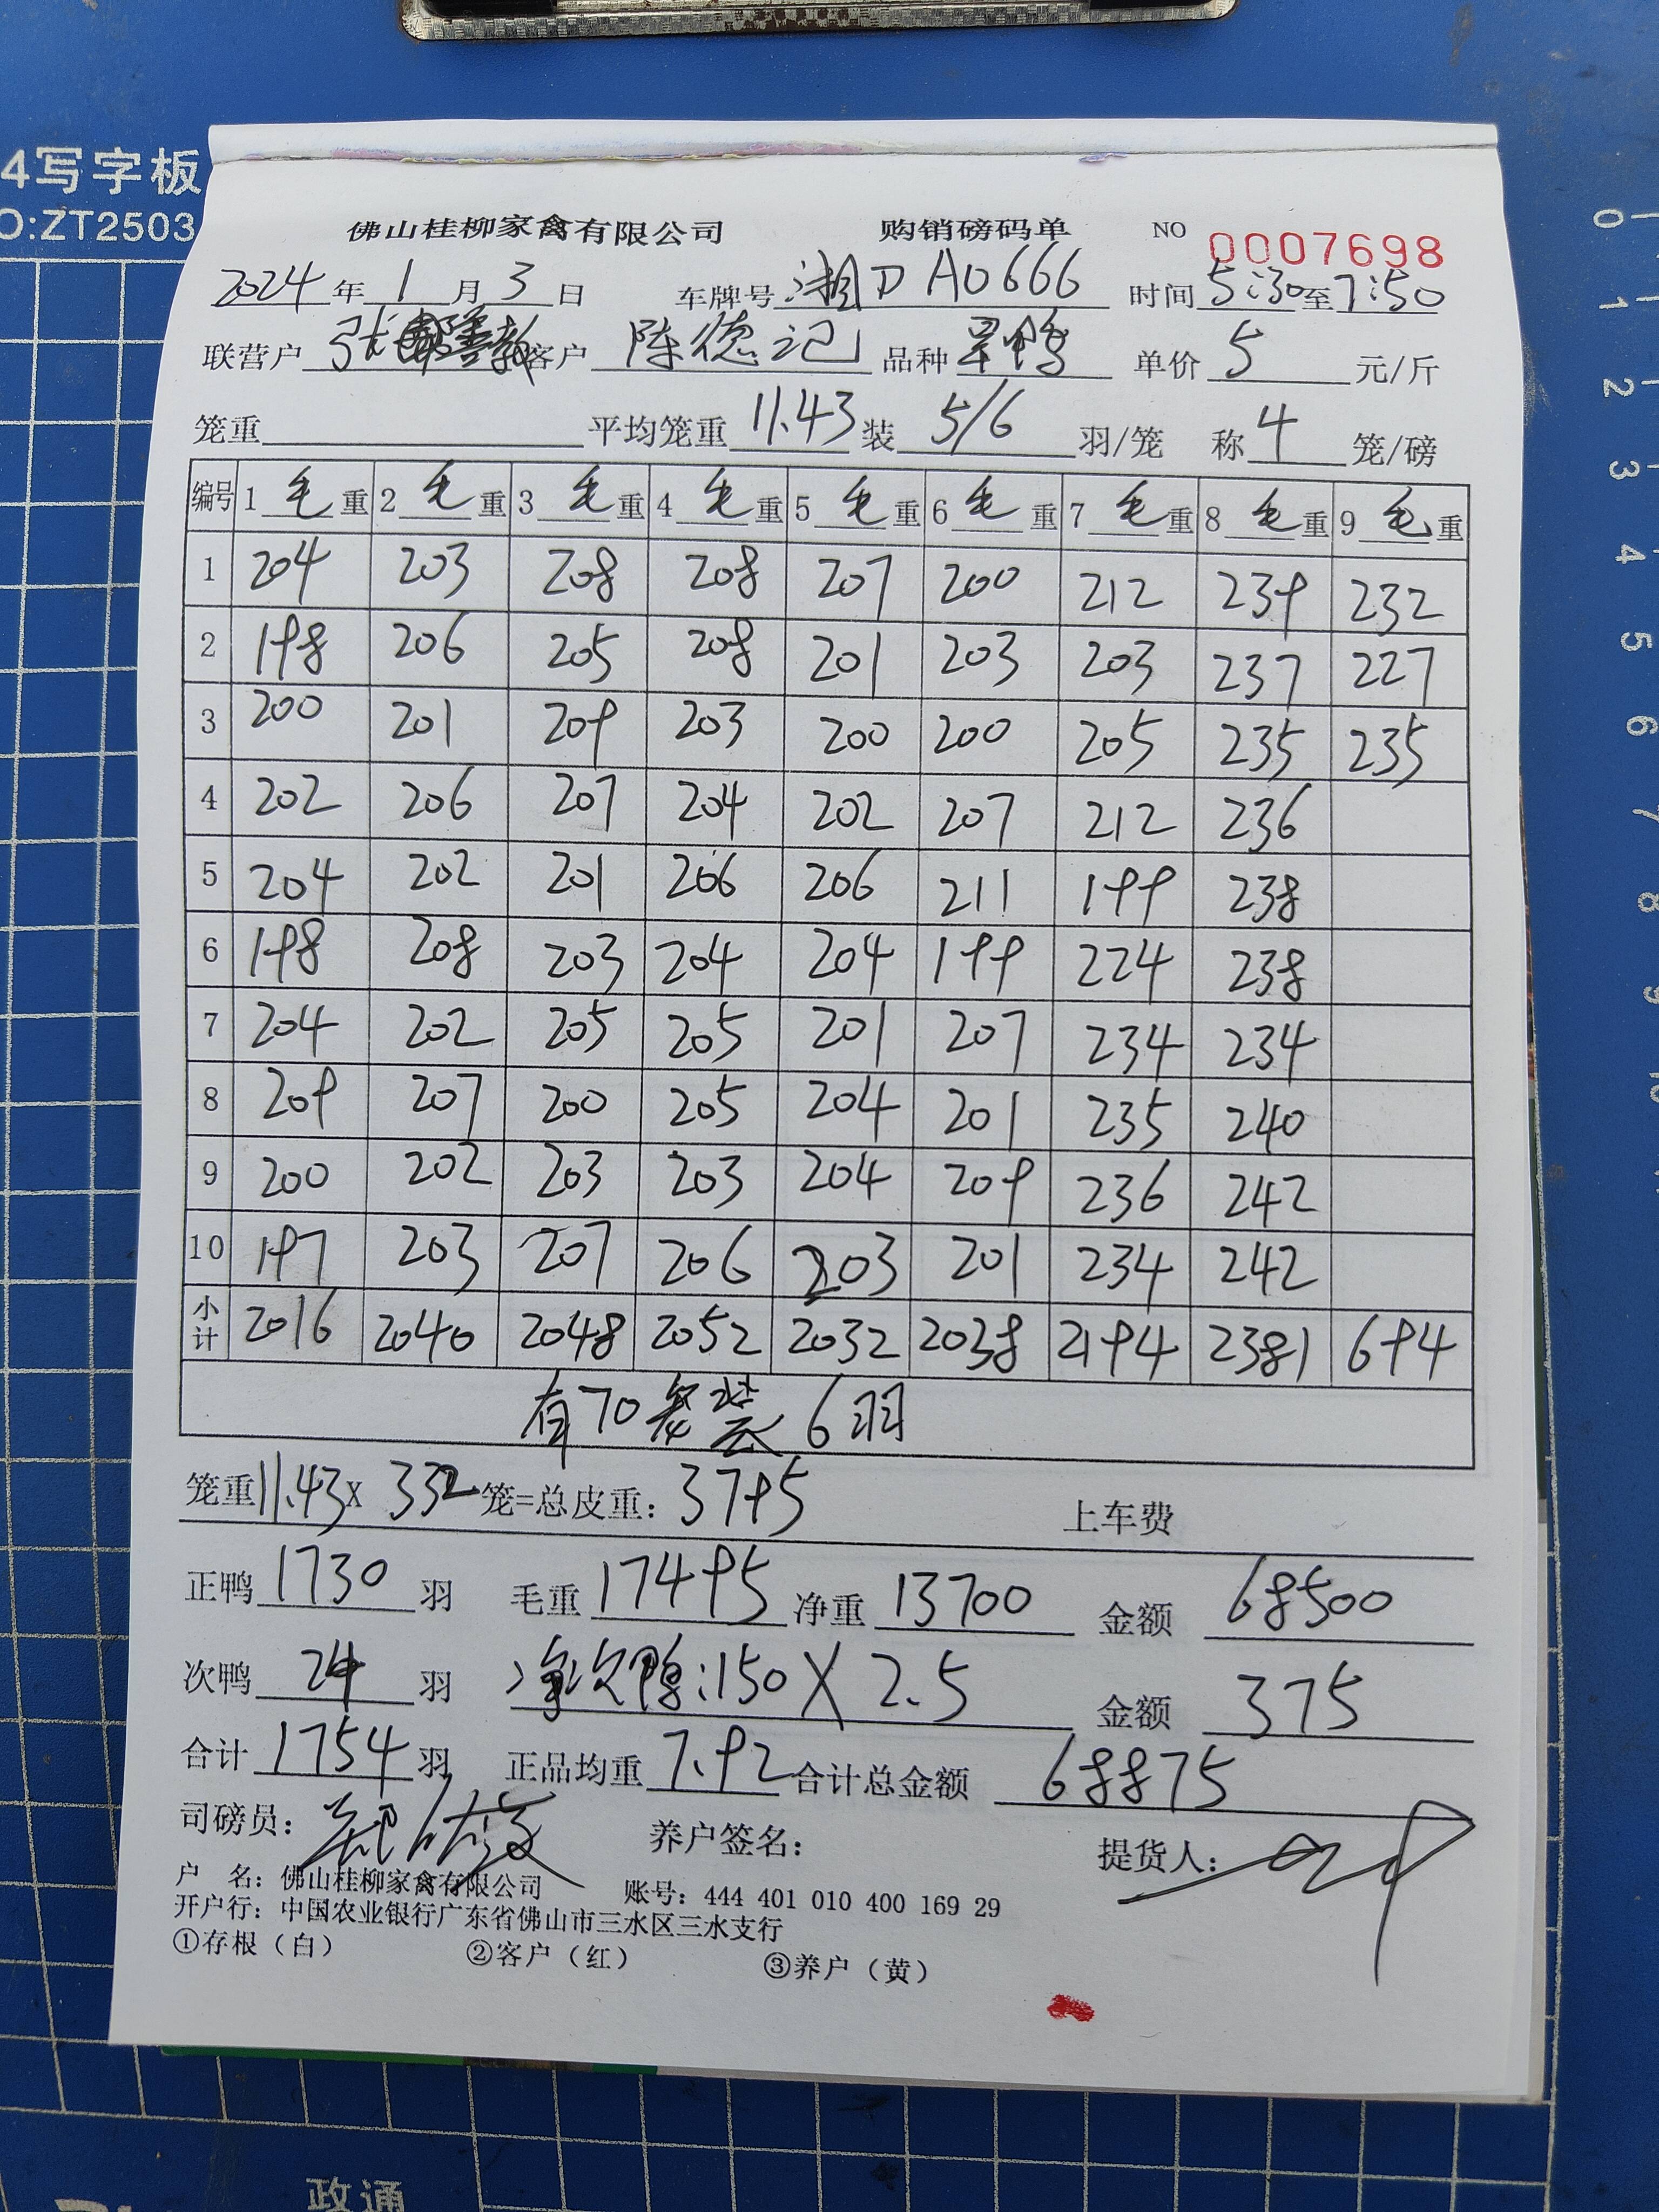 4写字板
O:ZT2503
佛山桂柳家禽有限公司 购销磅码单 NO 0007698
2024年1月3日 车牌号 湘D A0666 时间5:30至7:50
联营户 张 客户 陈德记 品种 旱鸭 单价 5 元/斤
笼重 平均笼重 11.43 装 5/6 羽/笼 称 4 笼/磅
编号 1 毛 重 2 毛 重 3 毛 重 4 毛 重 5 毛 重 6 毛 重 7 毛 重 8 毛 重 9 毛 重
1 204 203 208 208 207 200 212 239 232
2 198 206 205 208 201 203 203 237 227
3 200 201 209 203 200 200 205 235 235
4 202 206 207 204 202 207 212 236
5 204 202 201 206 206 211 199 238
6 198 208 203 204 204 199 224 238
7 204 202 205 205 201 207 234 234
8 209 207 200 205 204 201 235 240
9 200 202 203 203 204 209 236 242
10 197 203 207 206 203 201 234 242
小计 2016 2040 2048 2052 2032 2038 2194 2381 694
有70笼装6羽
笼重11.43X 332笼=总皮重：3795 上车费
正鸭 1730 羽 毛重 17495 净重 13700 金额 68500
次鸭 24 羽 净次鸭:150 X 2.5 金额 375
合计 1754 羽 正品均重 7.92 合计总金额 68875
司磅员： 养户签名： 提货人：
户 名：佛山桂柳家禽有限公司 账号：444 401 010 400 169 29
开户行：中国农业银行广东省佛山市三水区三水支行
①存根（白） ②客户（红） ③养户（黄）
0
1
2
3
4
5
6
7
8
9
10
政通